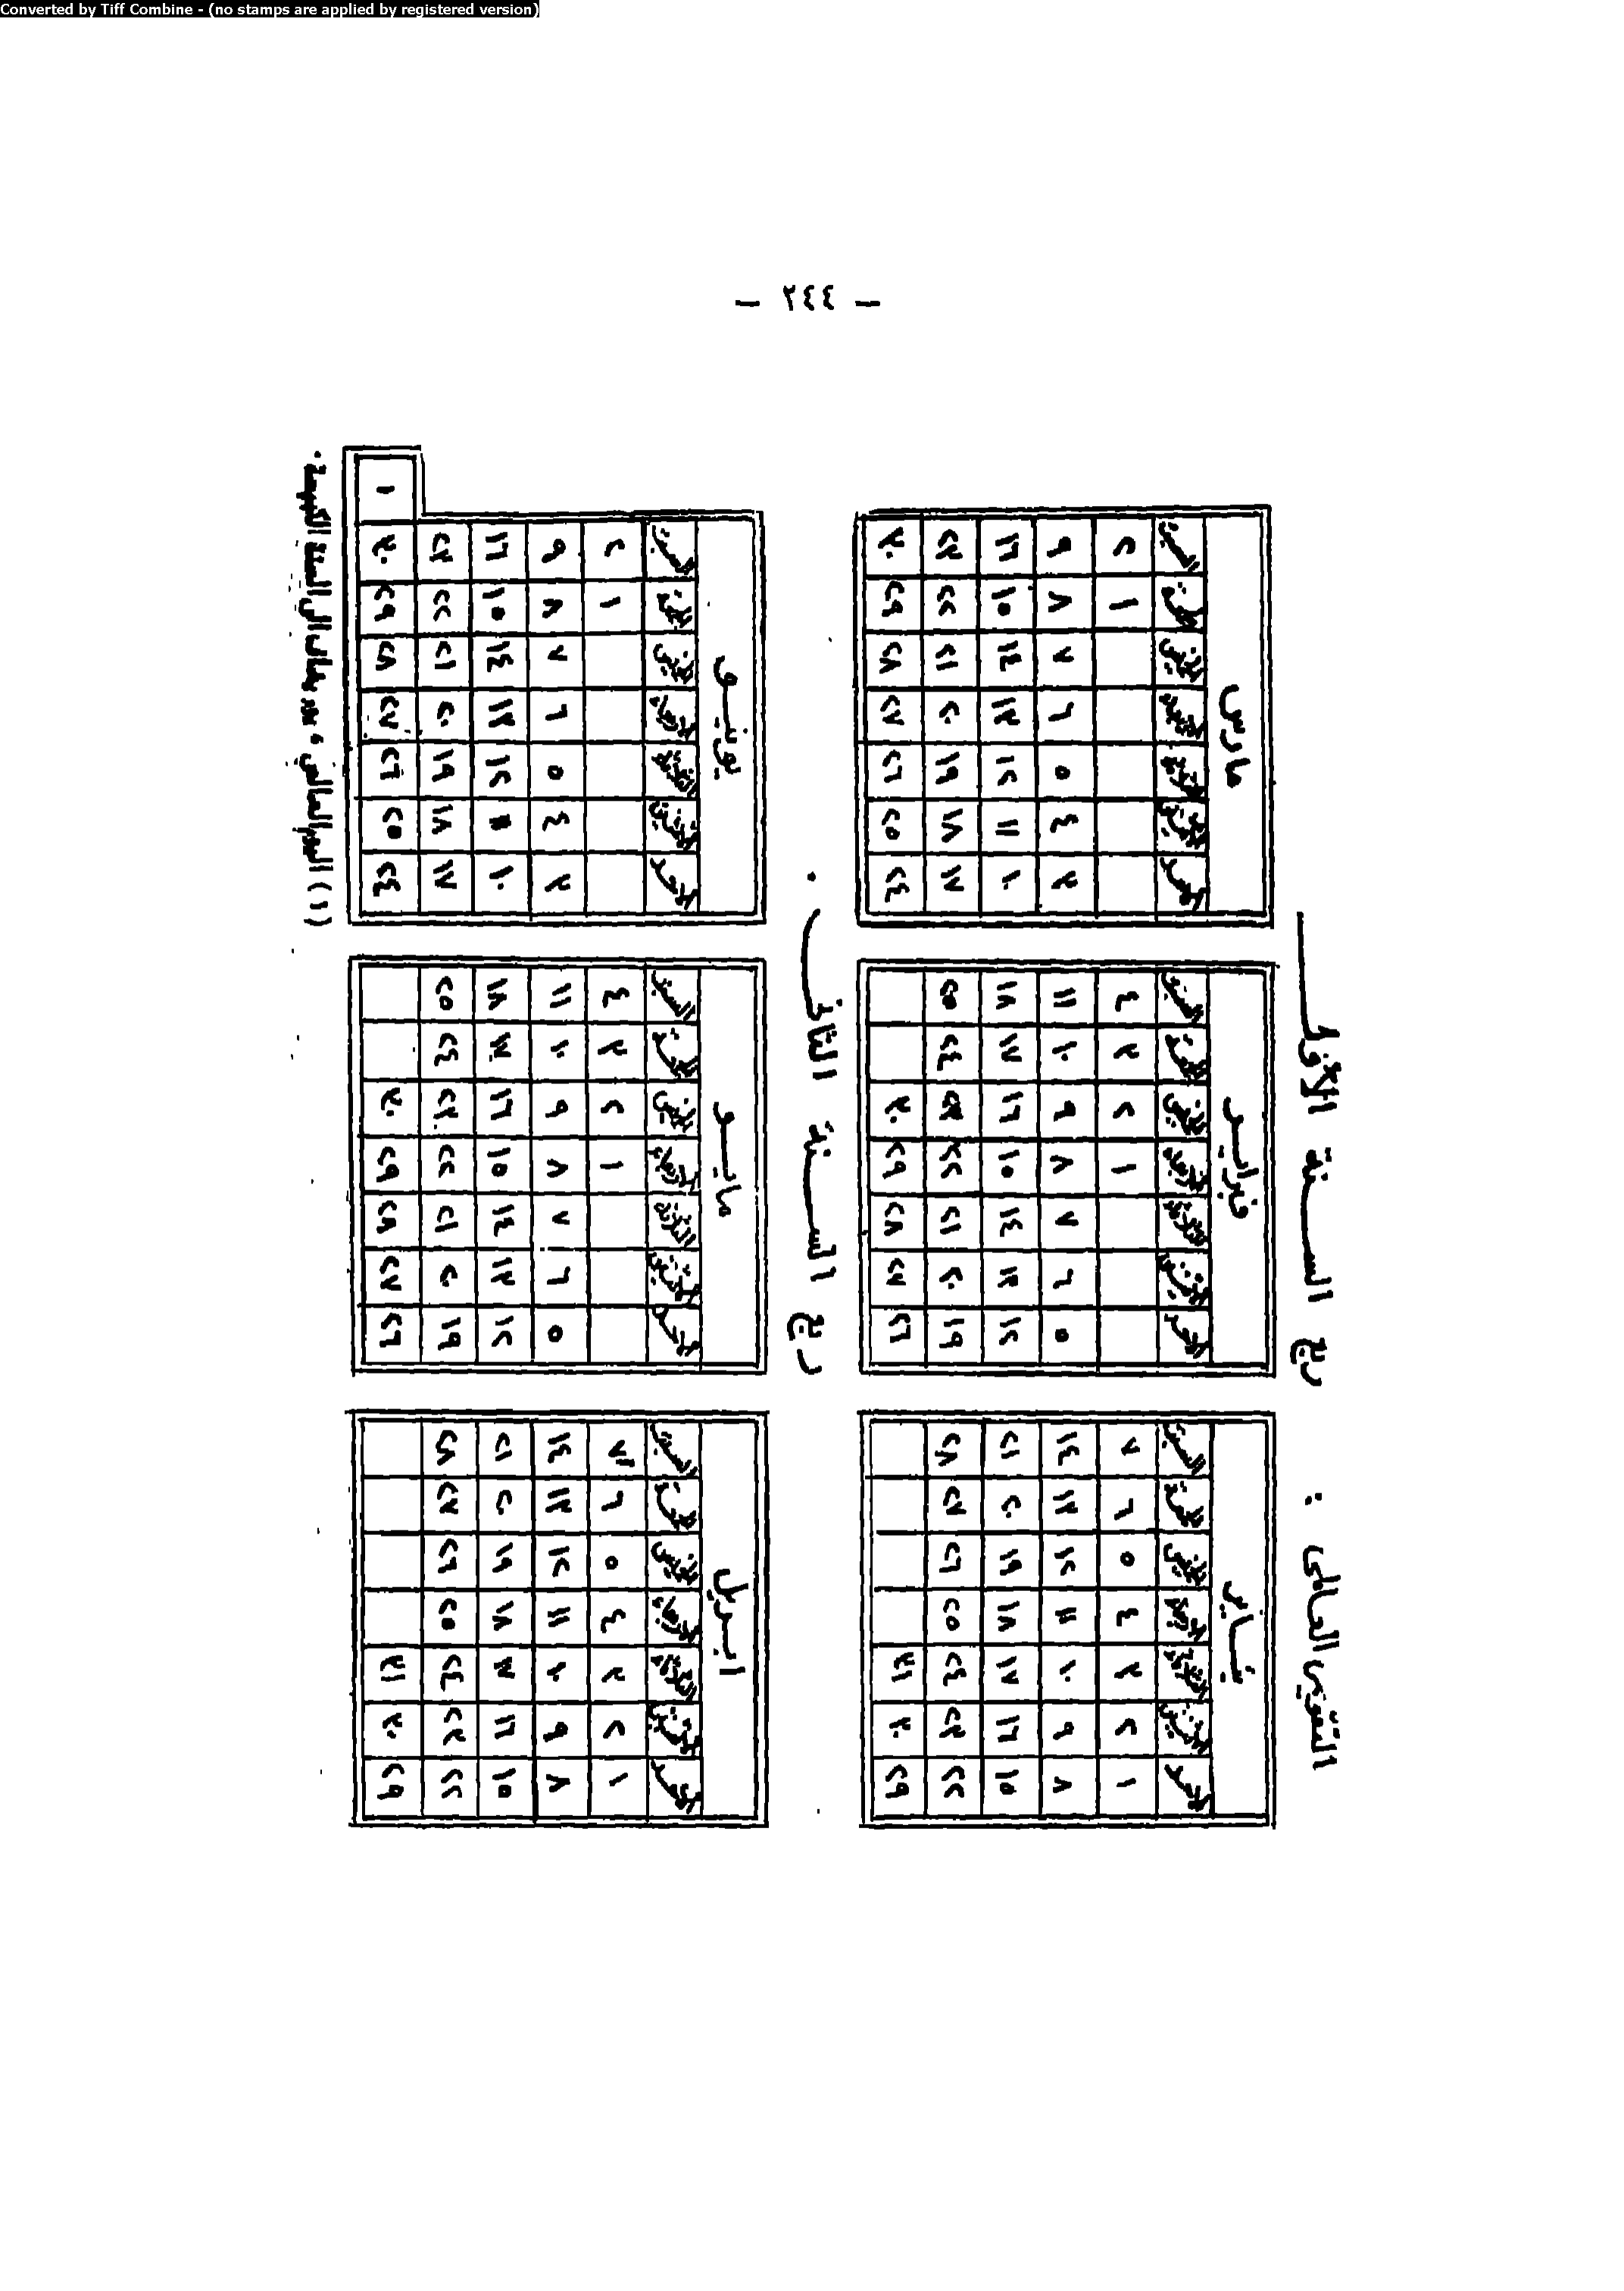 Converted by Tiff Combine - (no stamps are applied by registered version)
— ٢٤٤ —
التقويم العالمى : ربع السنة الأول
يناير
الأحد الاثنين الثلاثاء الأربعاء الخميس الجمعة السبت
١ ٢ ٣ ٤ ٥ ٦ ٧
٨ ٩ ١٠ ١١ ١٢ ١٣ ١٤
١٥ ١٦ ١٧ ١٨ ١٩ ٢٠ ٢١
٢٢ ٢٣ ٢٤ ٢٥ ٢٦ ٢٧ ٢٨
٢٩ ٣٠ ٣١
فبراير
الأحد الاثنين الثلاثاء الأربعاء الخميس الجمعة السبت
١ ٢ ٣ ٤
٥ ٦ ٧ ٨ ٩ ١٠ ١١
١٢ ١٣ ١٤ ١٥ ١٦ ١٧ ١٨
١٩ ٢٠ ٢١ ٢٢ ٢٣ ٢٤ ٢٥
٢٦ ٢٧ ٢٨ ٢٩ ٣٠
مارس
الأحد الاثنين الثلاثاء الأربعاء الخميس الجمعة السبت
١ ٢
٣ ٤ ٥ ٦ ٧ ٨ ٩
١٠ ١١ ١٢ ١٣ ١٤ ١٥ ١٦
١٧ ١٨ ١٩ ٢٠ ٢١ ٢٢ ٢٣
٢٤ ٢٥ ٢٦ ٢٧ ٢٨ ٢٩ ٣٠
ربع السنة الثانى .
ابريل
الأحد الاثنين الثلاثاء الأربعاء الخميس الجمعة السبت
١ ٢ ٣ ٤ ٥ ٦ ٧
٨ ٩ ١٠ ١١ ١٢ ١٣ ١٤
١٥ ١٦ ١٧ ١٨ ١٩ ٢٠ ٢١
٢٢ ٢٣ ٢٤ ٢٥ ٢٦ ٢٧ ٢٨
٢٩ ٣٠ ٣١
مايو
الأحد الاثنين الثلاثاء الأربعاء الخميس الجمعة السبت
١ ٢ ٣ ٤
٥ ٦ ٧ ٨ ٩ ١٠ ١١
١٢ ١٣ ١٤ ١٥ ١٦ ١٧ ١٨
١٩ ٢٠ ٢١ ٢٢ ٢٣ ٢٤ ٢٥
٢٦ ٢٧ ٢٨ ٢٩ ٣٠
يونيو
الأحد الاثنين الثلاثاء الأربعاء الخميس الجمعة السبت
١ ٢
٣ ٤ ٥ ٦ ٧ ٨ ٩
١٠ ١١ ١٢ ١٣ ١٤ ١٥ ١٦
١٧ ١٨ ١٩ ٢٠ ٢١ ٢٢ ٢٣
٢٤ ٢٥ ٢٦ ٢٧ ٢٨ ٢٩ ٣٠ ١
(١) اليوم العالمى ، يضاف الى السنة الكبيسة .